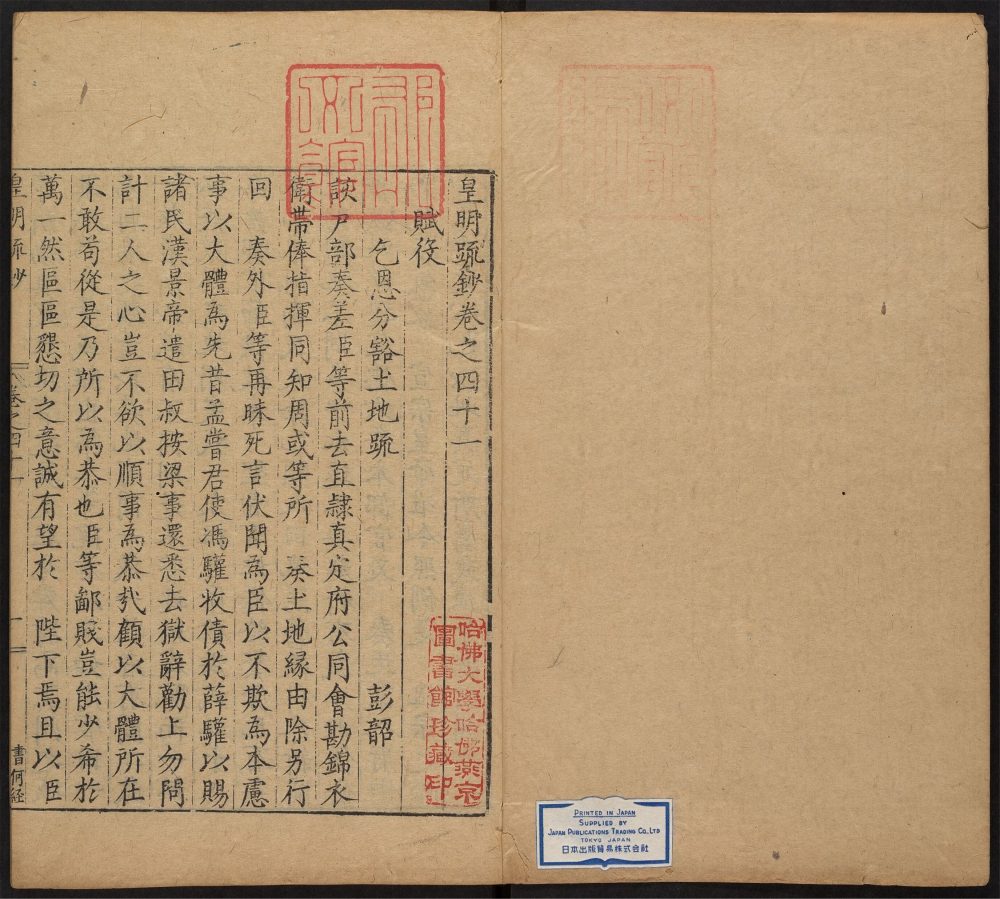 皇明疏鈔卷之四十一
賦役
乞恩分豁土地疏
彭韶
該戸部奏差臣等前去直隸真定府公同會勘錦衣
衛帶俸指揮同知周或等所 奏土地緣由除另行
回 奏外臣等再昧死言伏聞為臣以不欺為本慮
事以大體為先昔孟嘗君使馮驩收債於薛驩以賜
諸民漢景帝遣田叔按梁事還悉去獄辭勸上勿問
計二人之心豈不欲以順事為恭哉顧以大體所在
不敢苟從是乃所以為恭也臣等鄙賤豈能少希於
萬一然區區懇切之意誠有望於 陛下焉且以臣
皇明疏鈔
卷之四十一
一
書何經
哈佛大學哈佛燕京
圖書館珍藏印
PRINTED IN JAPAN
SUPPLIED BY
JAPAN PUBLICATIONS TRADING CO., LTD
TOKYO JAPAN
日本出版貿易株式会社